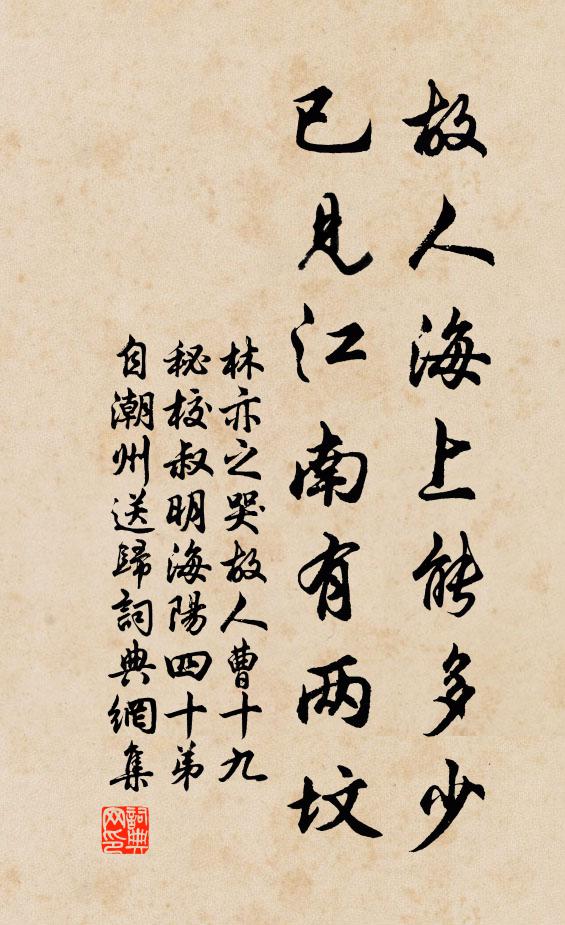 故人海上能多少
已見江南有两坟
林亦之哭故人曹十九
秘校叔明海陽四十弟
自潮州送歸詞典網集
詞典
网印